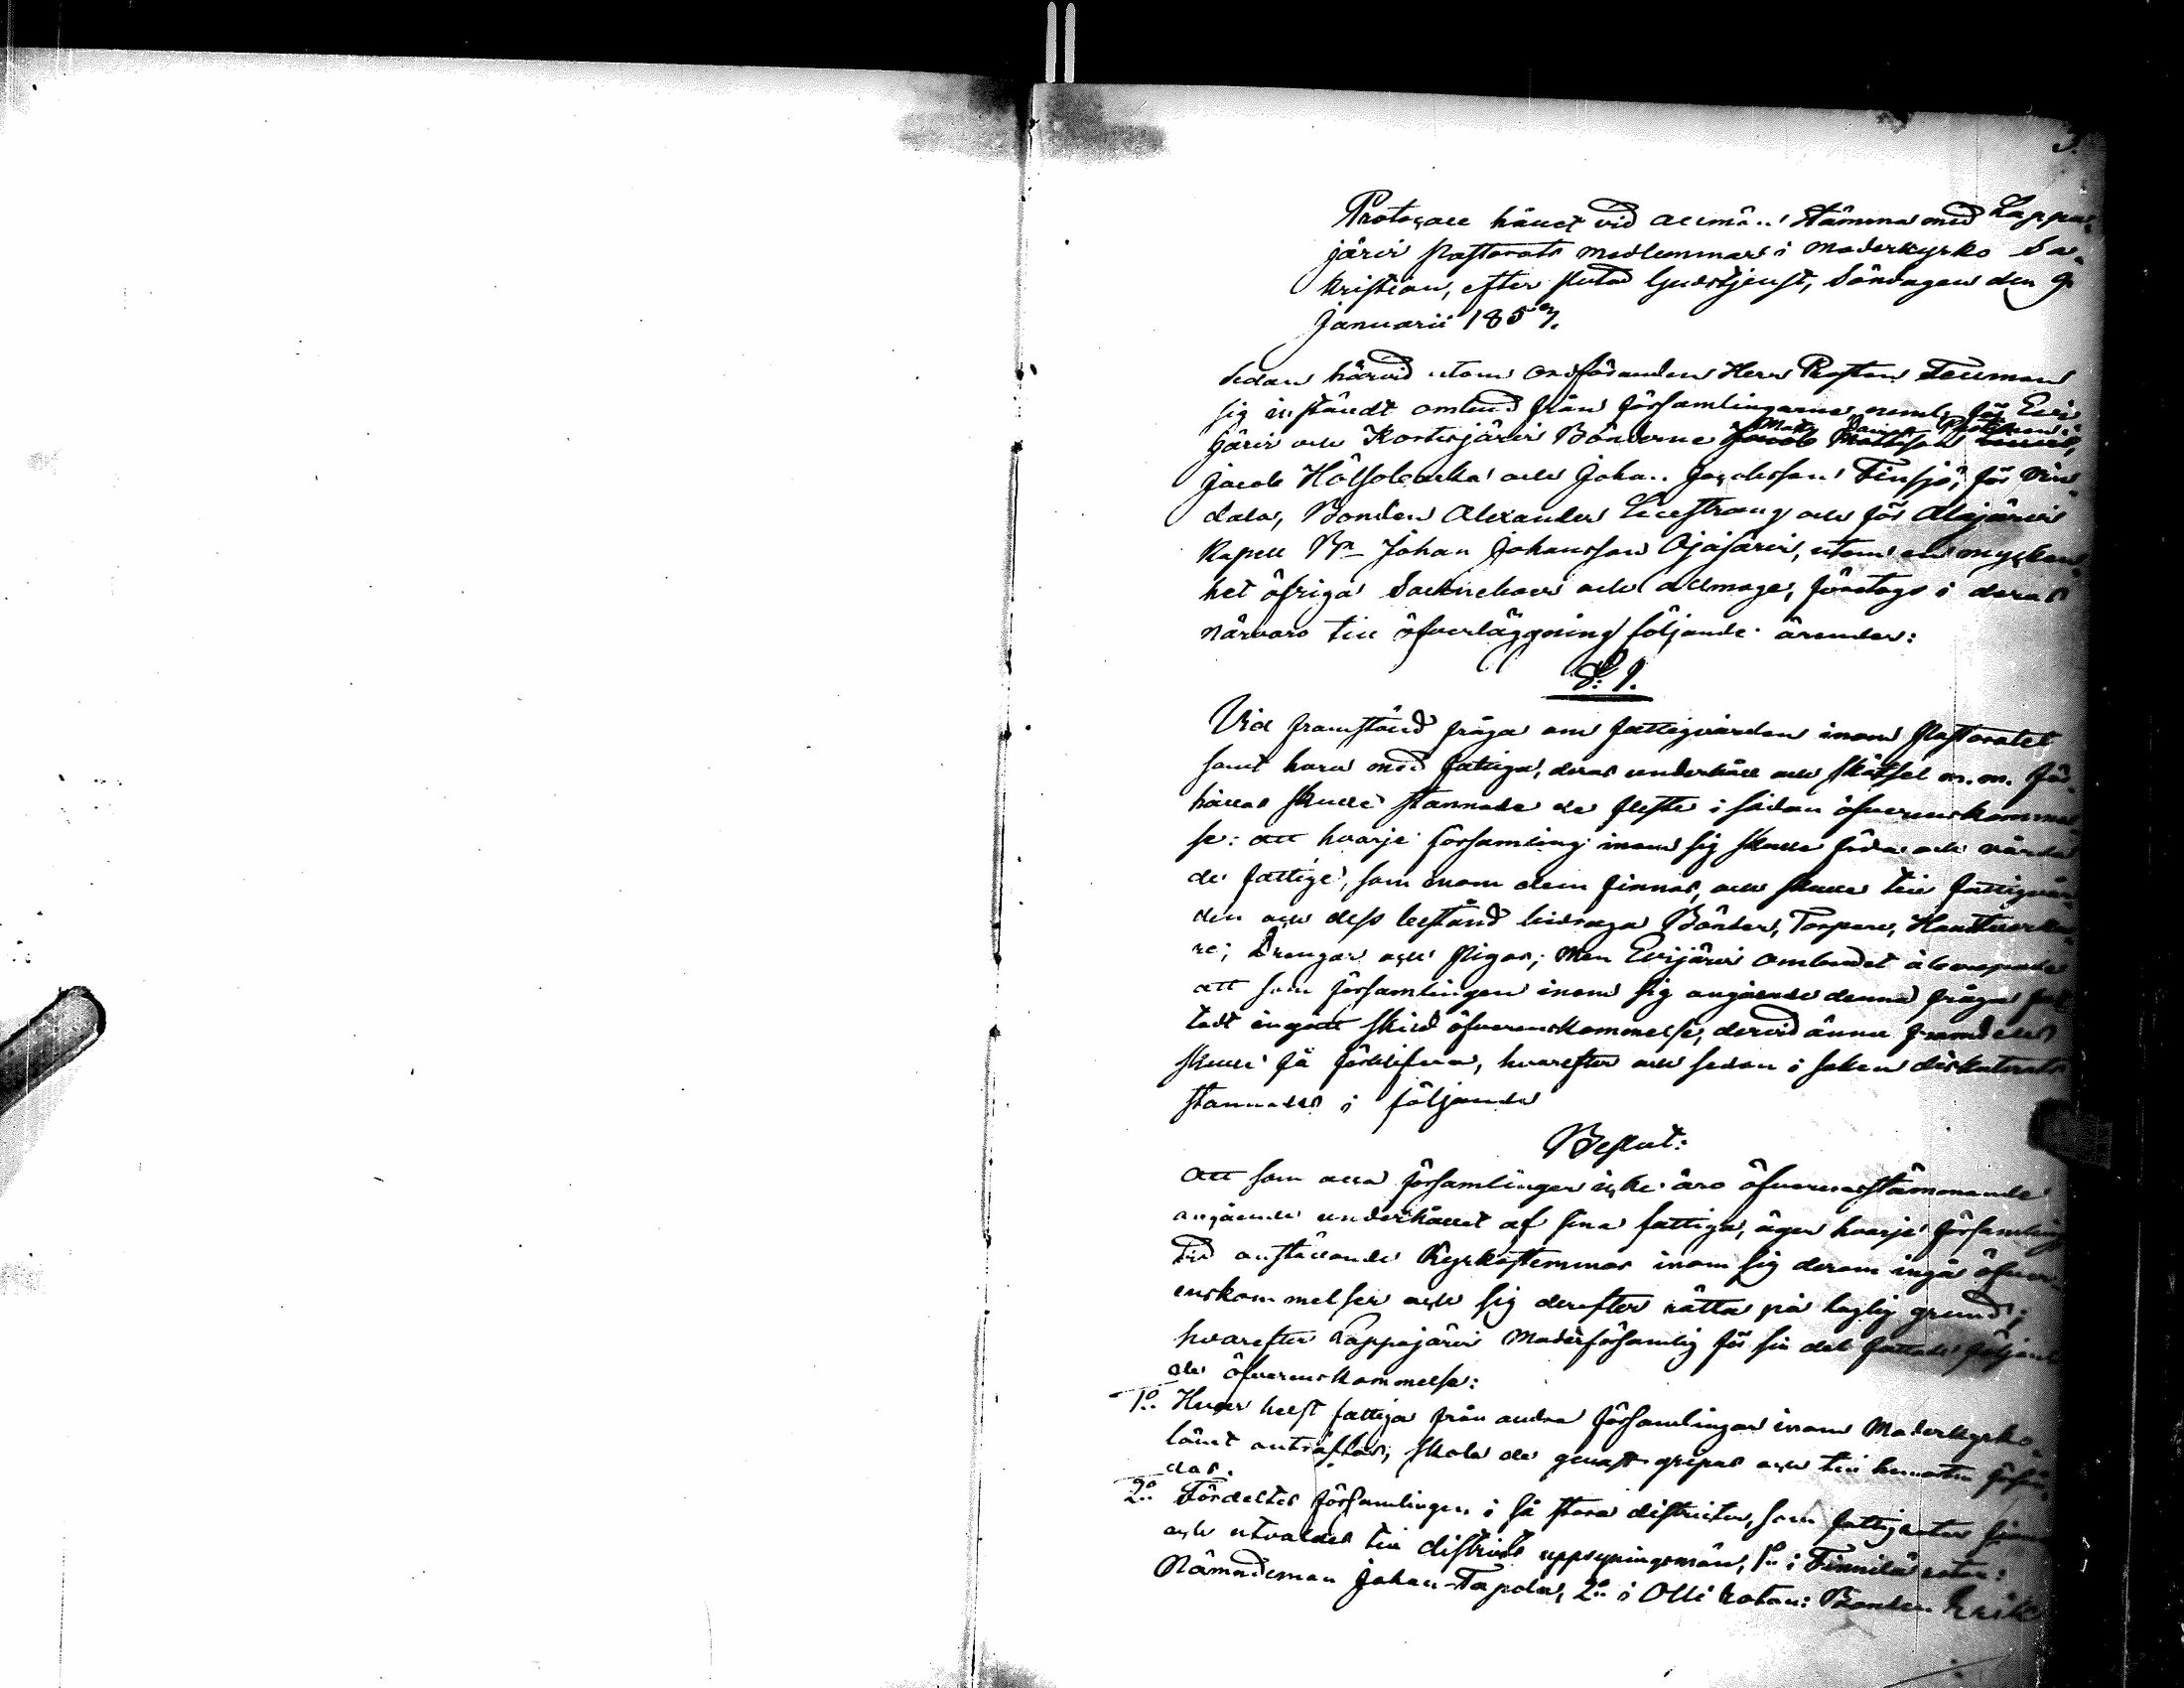 3.
Protocoll hållet vid allmän Stämma med Lappa-
järvi Pastorats medlemmar i Moderkyrko Sa-
kristian, efter slutad Gudstjenst, Söndagen den 9
Januarii 185
Sedan härvid utom Ordföranden Herr Prosten Teuman
sig inställdt ombud från församlingarne, neml. för Evi-
järvi och Kortisjärvi Bönderne Matts
Jacob och Johan Jacobsson Finsjö, för Vin-
dala, Bonden Alexander och för Alajärvi
Kapell Bn Johan Johansson Ojajärvi, utom en mycken-
het öfriga Sockneboer och Allmoge, företogs i deras
närvaro till öfverläggning följande ärender:
§: 1.
Vid framställd fråga om fattigvården inom Pastoratet
samt huru med fattiga, deras underhåll och skötsel m.m. för-
hållas skulle stannade de fleste i sådan öfverenskommel-
se: att hvarje församling inom sig skulle föda och vårda
de fattige, som inom dem finnas, och skulle till fattigvår-
den och dess bestånd bidraga Bönder, Torpare, Handtverka-
re, Drengar och Pigor; men Evijärvi ombudet åberopade
att som församlingen inom sig angående denna fråga fat-
tadt ingått skild öfverenskommelse, dervid ännu framdeles
skulle få förblifva, hvarefter och sedan i saken diskuterats
stannades i följande
Beslut:
Att som alla församlingar icke äro öfverensstämmande
angående underhållet af sina fattiga, äger hvarje församling
vid anställande Kyrkostemmor inom sig derom ingå öfver-
enskommelser och sig derefter rätta på laglig grund;
hvarefter Lappajärvi Moderförsamlig för sin del fattade följan-
de öfverenskommelse:
1o Hvar helst fattiga från andra församlingar inom Moderkyrko-
länet anträffas, skola de genast gripas och till hemorten förfär-
das.
2o Fördeltes församlingen i så stora districter, som fattigrotar finnas
och utvaldes till districts uppsyningsmän, 1o i Finnilä rotan:
Nämndeman Johan Tapola, 2o i Olli rotan: Bonden Erik